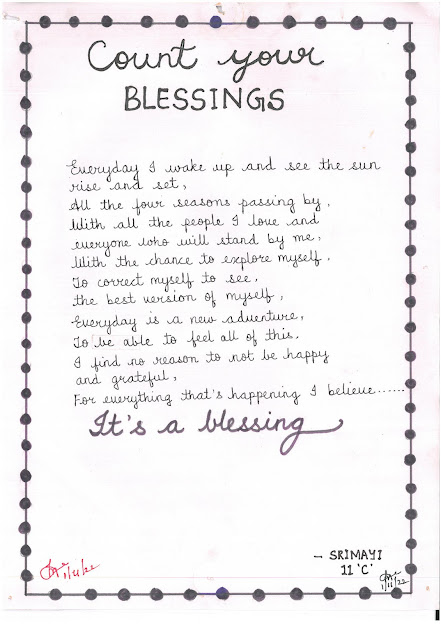 Count your
BLESSINGS
Everyday I wake up and see the sun
rise and set,
All the four seasons passing by,
With all the people I love and
everyone who will stand by me,
With the chance to explore myself,
To correct myself to see,
the best version of myself,
Everyday is a new adventure,
To be able to feel all of this,
I find no reason to not be happy
and grateful,
For everything that's happening I believe......
It's a blessing
- SRIMAYI
11 'C'
1/11/22
1/11/22